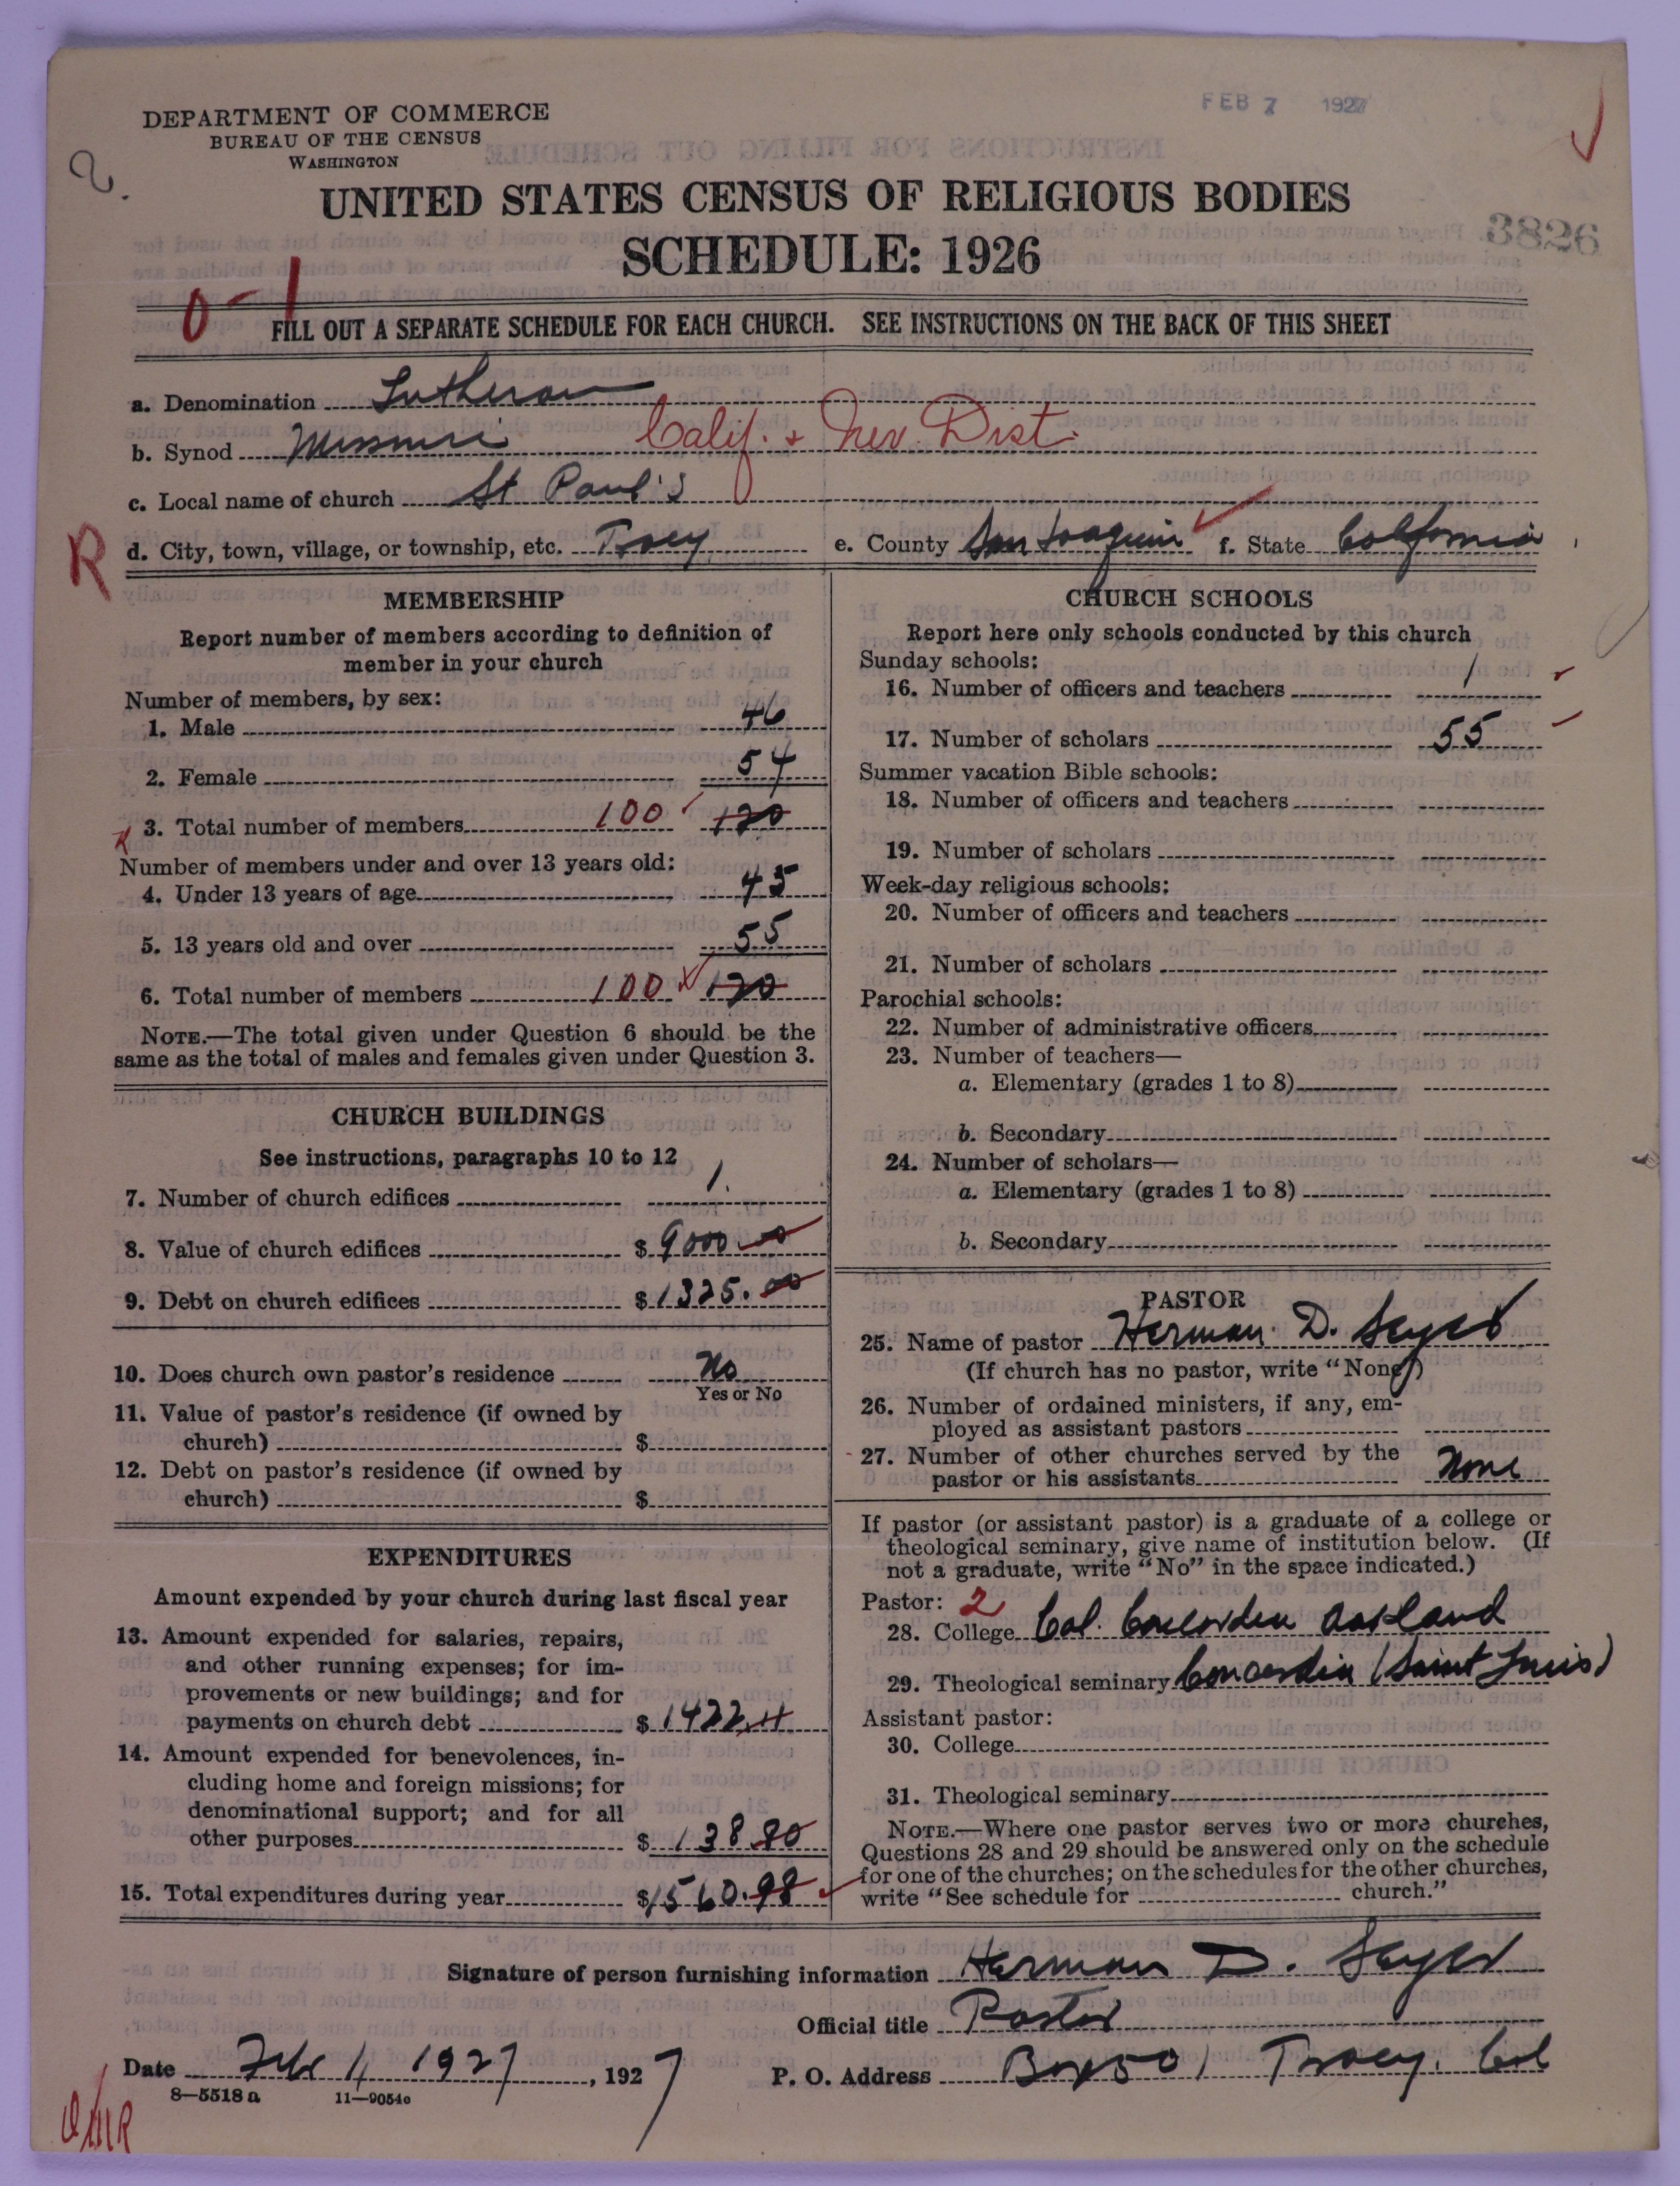 DEPARTMENT OF COMMERCE
BUREAU OF THE CENSUS
WASHINGTON
FEB 7 1927
2.
UNITED STATES CENSUS OF RELIGIOUS BODIES
SCHEDULE: 1926
3826
0-1
FILL OUT A SEPARATE SCHEDULE FOR EACH CHURCH. SEE INSTRUCTIONS ON THE BACK OF THIS SHEET
a. Denomination Lutheran
b. Synod Missouri Calif. + Nev. Dist.
c. Local name of church St Paul's
R
d. City, town, village, or township, etc. Tracy e. County San Joaquin f. State California
MEMBERSHIP
Report number of members according to definition of
member in your church
Number of members, by sex:
1. Male 46
2. Female 54
3. Total number of members 100 120
Number of members under and over 13 years old:
4. Under 13 years of age 45
5. 13 years old and over 55
6. Total number of members 100 120
NOTE.—The total given under Question 6 should be the
same as the total of males and females given under Question 3.
CHURCH BUILDINGS
See instructions, paragraphs 10 to 12
7. Number of church edifices 1.
8. Value of church edifices $ 9000.00
9. Debt on church edifices $ 1325.00
10. Does church own pastor's residence No
Yes or No
11. Value of pastor's residence (if owned by
church) $
12. Debt on pastor's residence (if owned by
church) $
EXPENDITURES
Amount expended by your church during last fiscal year
13. Amount expended for salaries, repairs,
and other running expenses; for im-
provements or new buildings; and for
payments on church debt $ 1422.
14. Amount expended for benevolences, in-
cluding home and foreign missions; for
denominational support; and for all
other purposes $ 138.80
15. Total expenditures during year $ 1560.98
CHURCH SCHOOLS
Report here only schools conducted by this church
Sunday schools:
16. Number of officers and teachers 1
17. Number of scholars 55
Summer vacation Bible schools:
18. Number of officers and teachers
19. Number of scholars
Week-day religious schools:
20. Number of officers and teachers
21. Number of scholars
Parochial schools:
22. Number of administrative officers
23. Number of teachers—
a. Elementary (grades 1 to 8)
b. Secondary
24. Number of scholars—
a. Elementary (grades 1 to 8)
b. Secondary
PASTOR
25. Name of pastor Herman D.
(If church has no pastor, write "None")
26. Number of ordained ministers, if any, em-
ployed as assistant pastors
27. Number of other churches served by the
pastor or his assistants None
If pastor (or assistant pastor) is a graduate of a college or
theological seminary, give name of institution below. (If
not a graduate, write "No" in the space indicated.)
Pastor: 2
28. College Cal. Concordia Oakland
29. Theological seminary Concordia (Saint Louis)
Assistant pastor:
30. College
31. Theological seminary
NOTE.—Where one pastor serves two or more churches,
Questions 28 and 29 should be answered only on the schedule
for one of the churches; on the schedules for the other churches,
write "See schedule for church."
Signature of person furnishing information Herman D.
Official title Pastor
Date Feb 4 1927, 1927 P. O. Address Box 501 Tracy. Cal
8—5518 a 11—9054c